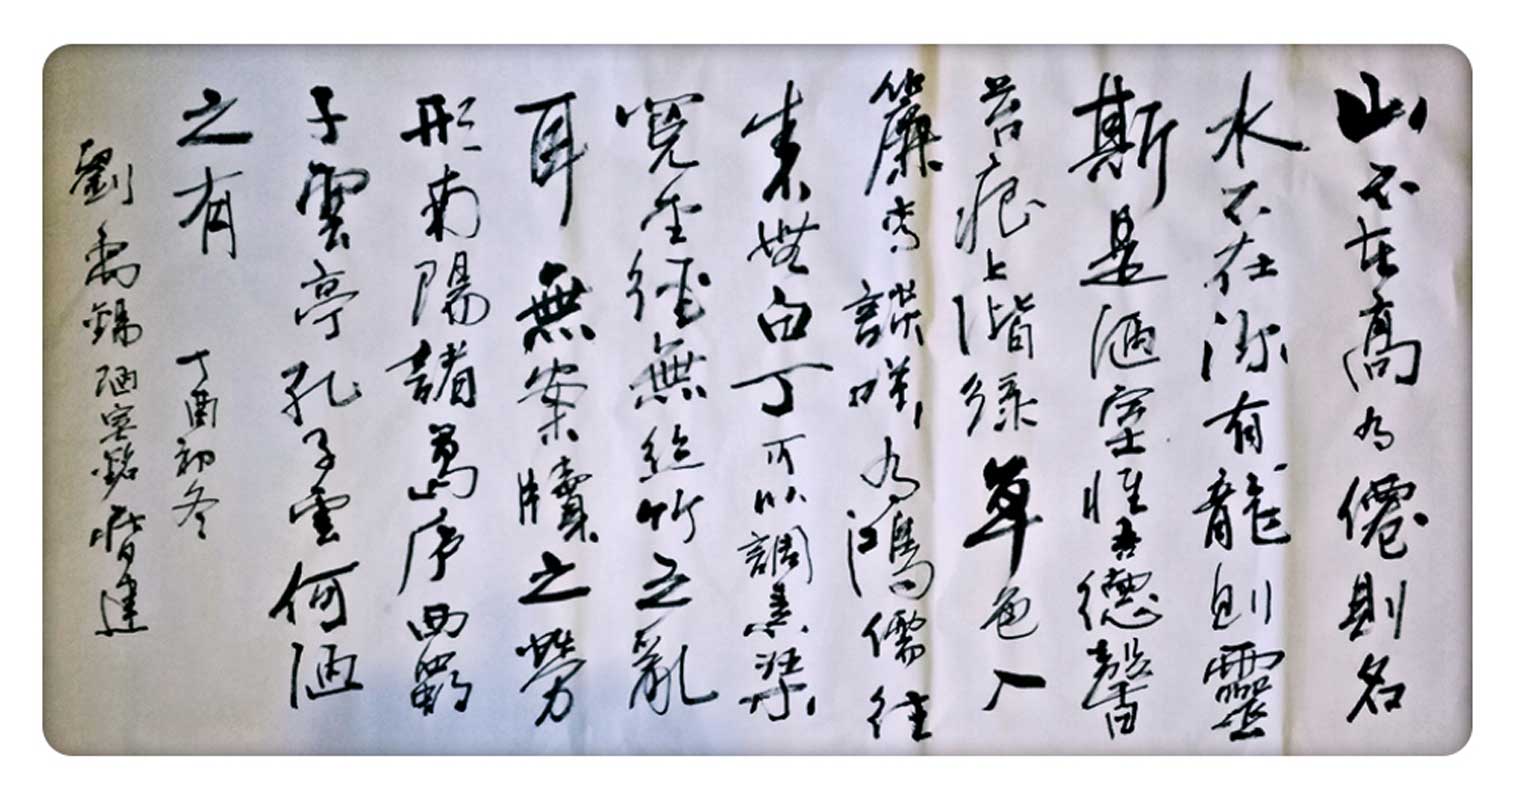 山不在高為僊則名
水不在深有龍則靈
斯是陋室惟吾德馨
苔痕上階綠草色入
簾青談咲有鴻儒往
來無白丁可以調素琴
閱金經無絲竹之亂
耳無案牘之勞
形南陽諸葛廬西蜀
子雲亭孔子雲何陋
之有 丁酉初冬
劉禹錫陋室銘 建